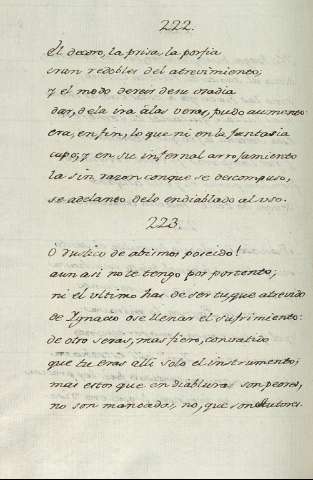 222.
El decoro, la prisa, la porfia
eran redobles del atrevimiento;
y el modo de reir de su osadia
dar, de la ira à las veras, pudo aumento
era, en fin, lo que ni en la fantasia
cupo, y en su infernal arrojamiento
la sin razon conque se descompuso,
se adelantò delo endiablado al uso.
223.
O rustico de abismos poseido!
aun asi no te tengo por portento;
ni el ultimo has de ser tu, que atrevido
de Ignacio ose llenar el sufrimiento:
de otro seras, mas fiero, convatido
que tu eras alli solo el instrumento;
mas estos que en diabluras son peores,
no son mancados, no, que son Autores.